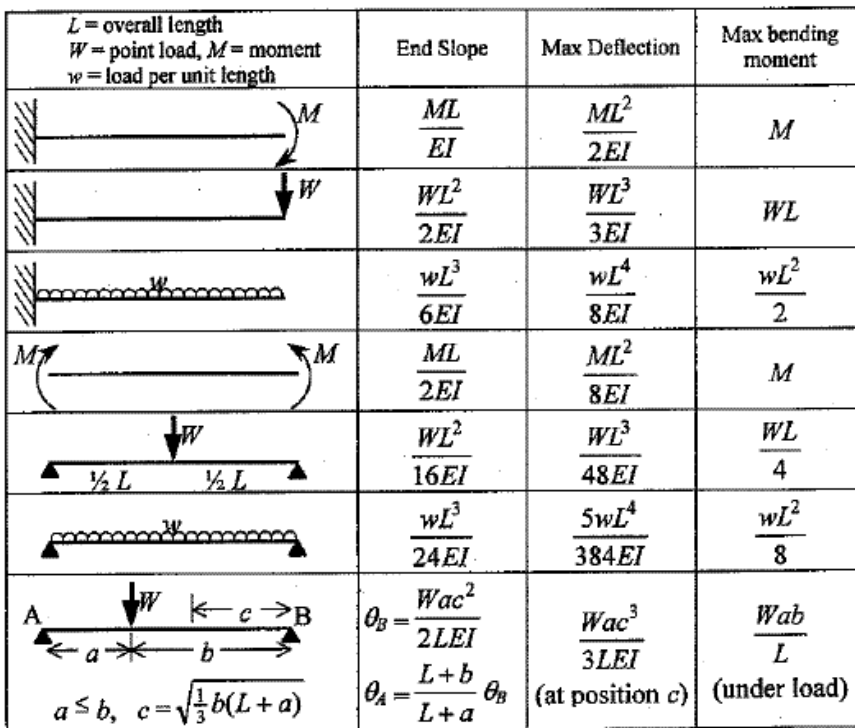 L = overall length
W = point load, M = moment
w = load per unit length
End Slope
Max Deflection
Max bending moment
M
ML/EI
ML²/2EI
M
W
WL²/2EI
WL³/3EI
WL
w
wL³/6EI
wL⁴/8EI
wL²/2
M M
ML/2EI
ML²/8EI
M
W
½ L ½ L
WL²/16EI
WL³/48EI
WL/4
w
wL³/24EI
5wL⁴/384EI
wL²/8
W
A c B
a b
a ≤ b, c = √(⅓b(L + a))
θ_B = Wac²/2LEI
θ_A = (L + b)/(L + a) θ_B
Wac³/3LEI
(at position c)
Wab/L
(under load)